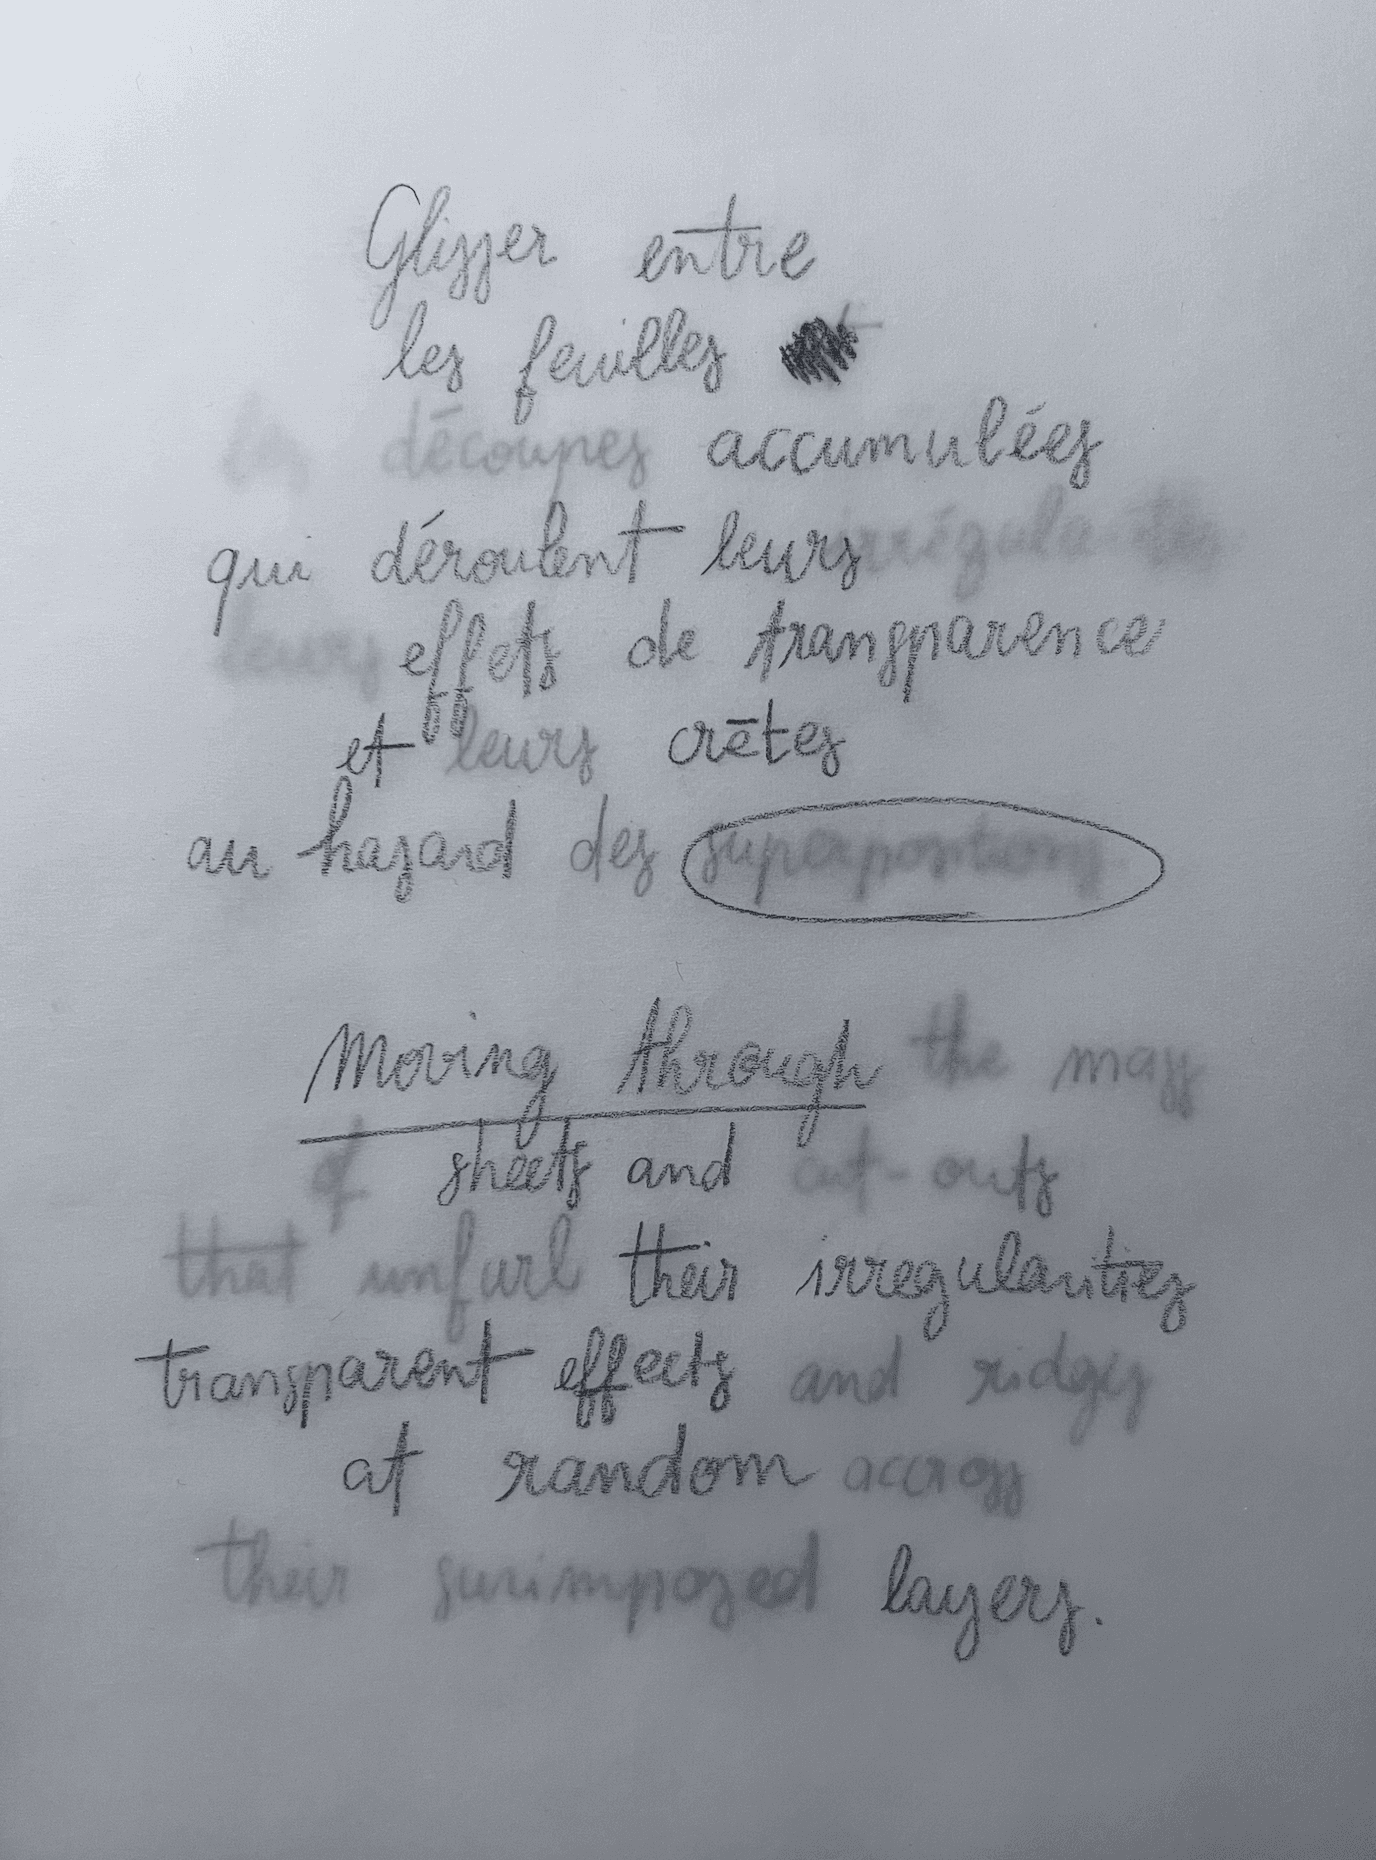 Glisser entre
les feuilles
les découpes accumulées
qui déroulent leurs irrégularités
leurs effets de transparence
et leurs crêtes
au hasard des superpositions
Moving through the mass
of sheets and cut-outs
that unfurl their irregularities
transparent effects and ridges
at random accross
their surimposed layers.